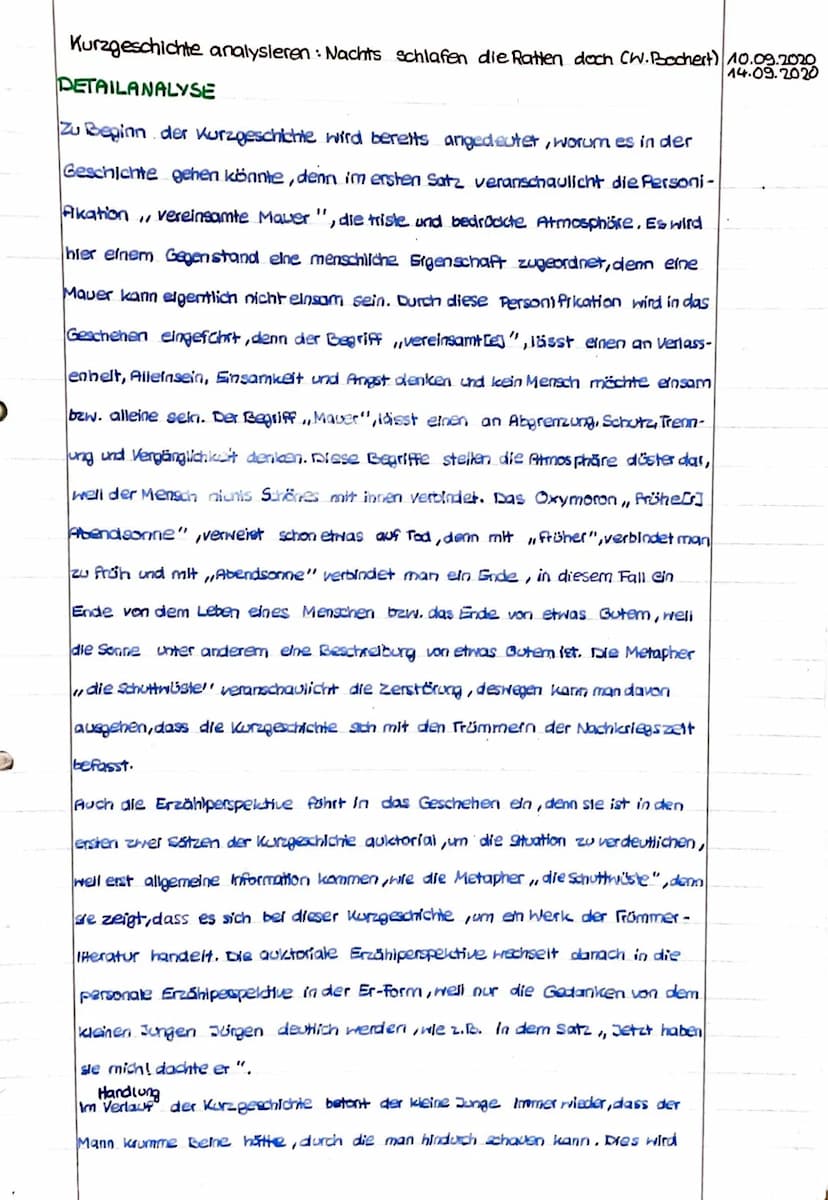 Kurzgeschichte analysieren: Nachts schlafen die Ratten doch (W. Bochert) 10.09.2020
14.09.2020
DETAILANALYSE
Zu Beginn der Kurzgeschichte wird bereits angedeutet, worum es in der
Geschichte gehen könnte, denn im ersten Satz veranschaulicht die Personi-
fikation „vereinsamte Mauer", die triste und bedrückte Atmosphäre. Es wird
hier einem Gegenstand eine menschliche Eigenschaft zugeordnet, denn eine
Mauer kann eigentlich nicht einsam sein. Durch diese Personifikation wird in das
Geschehen eingeführt, denn der Begriff „vereinsamt[e]", lässt einen an Verlass-
enheit, Alleinsein, Einsamkeit und Angst denken und kein Mensch möchte einsam
bzw. alleine sein. Der Begriff „Mauer", lässt einen an Abgrenzung, Schutz, Trenn-
ung und Vergänglichkeit denken. Diese Begriffe stellen die Atmosphäre düster dar,
weil der Mensch nichts Schönes mit ihnen verbindet. Das Oxymoron „frühe[r]
Abendsonne", verweist schon etwas auf Tod, denn mit „früher", verbindet man
zu früh und mit „Abendsonne" verbindet man ein Ende, in diesem Fall ein
Ende von dem Leben eines Menschen bzw. das Ende von etwas Gutem, weil
die Sonne unter anderem eine Beschreibung von etwas Gutem ist. Die Metapher
„die Schuttwüste" veranschaulicht die Zerstörung, deswegen kann man davon
ausgehen, dass die Kurzgeschichte sich mit den Trümmern der Nachkriegszeit
befasst.
Auch die Erzählperspektive führt in das Geschehen ein, denn sie ist in den
ersten zwei Sätzen der Kurzgeschichte auktorial, um die Situation zu verdeutlichen,
weil erst allgemeine Information kommen, wie die Metapher „die Schuttwüste", denn
sie zeigt, dass es sich bei dieser Kurzgeschichte, um ein Werk der Trümmer-
literatur handelt. Die auktoriale Erzählperspektive wechselt danach in die
personale Erzählperspektive in der Er-Form, weil nur die Gedanken von dem
kleinen Jungen Jürgen deutlich werden, wie z.B. in dem Satz „Jetzt haben
sie mich! dachte er".
Handlung
Im Verlauf der Kurzgeschichte betont der kleine Junge immer wieder, dass der
Mann krumme Beine hätte, durch die man hindurch schauen kann. Dies wird